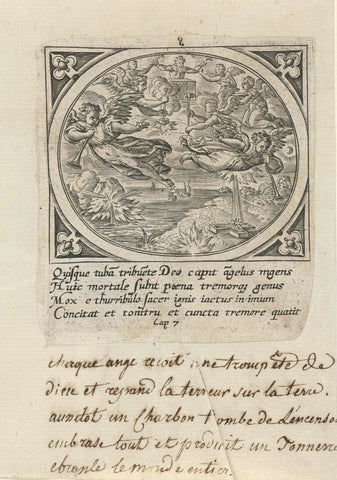 8
Quisque tuba tribuēte Deo capit āgelus ingens
Huic mortale subit poena tremorq; genus
Mox e thurribulo sacer ignis iactus in imum
Concitat et tonitru et cuncta tremore quatit
Cap 7
chaque ange recoit une trompête de
dieu et repand la terreur sur la terre.
aussitot un Charbon tombe de L'encenso
embrase tout et produit un Tonnerre
ebranle le monde entier.